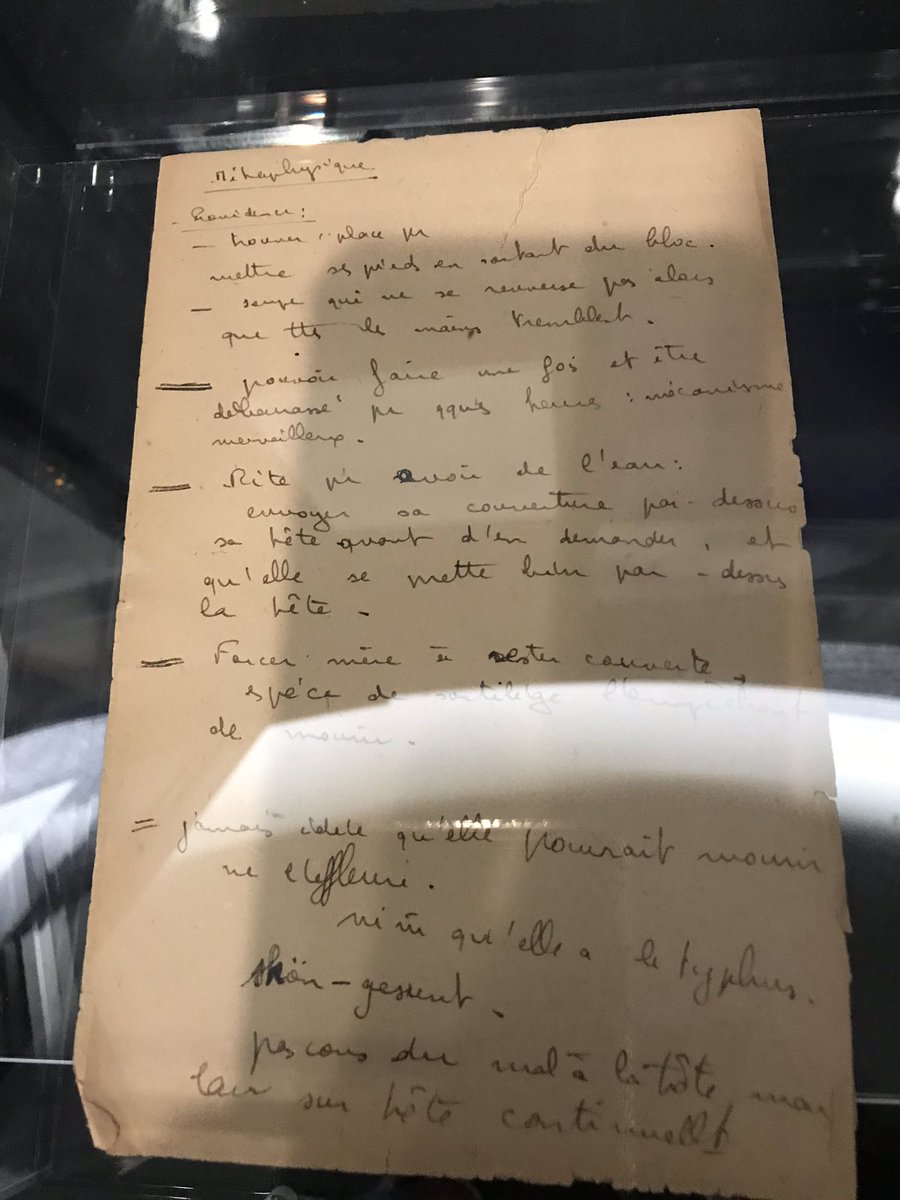 Métaphysique
Providence:
— trouver 1 place pr
mettre ses pieds en sortant du bloc.
— soupe qui ne se renverse pas alors
que ttes les mains tremblent.
— pouvoir faire une fois et être
débarrassé pr qqes heures : mécanisme
merveilleux.
— Rite pr avoir de l'eau:
envoyer sa couverture par-dessus
sa tête avant d'en demander, et
qu'elle se mette bien par-dessus
la tête -
— Forcer mère à rester couverte
espèce de sortilège l'empêchant
de mourir.
= jamais idée qu'elle pourrait mourir
ne l'effleure.
ni qu'elle a le typhus.
shön-gesunt.
pas du mal à la tête
sur tête continuellt